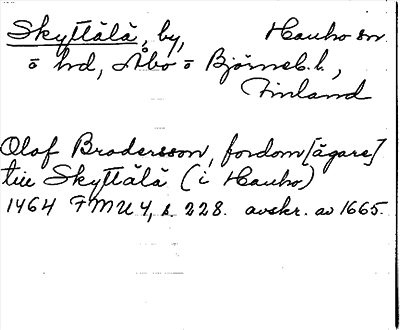 Skyttälä, by, Hauho sn
o hd, Åbo o Björneb. l.,
Finland
Olof Brodersson, fordom [ägare]
till Skyttälä (i Hauho)
1464 FMU 4, s. 228. avskr. av 1665.